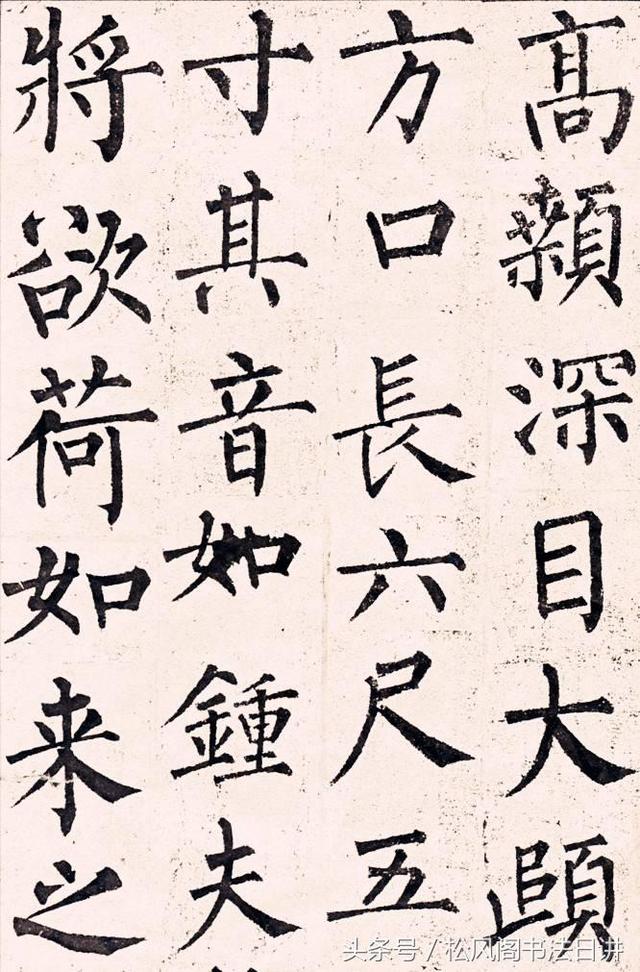 高顙深目大頤
方口長六尺五
寸其音如鍾夫
將欲荷如来之
头条号/松风阁书法日讲